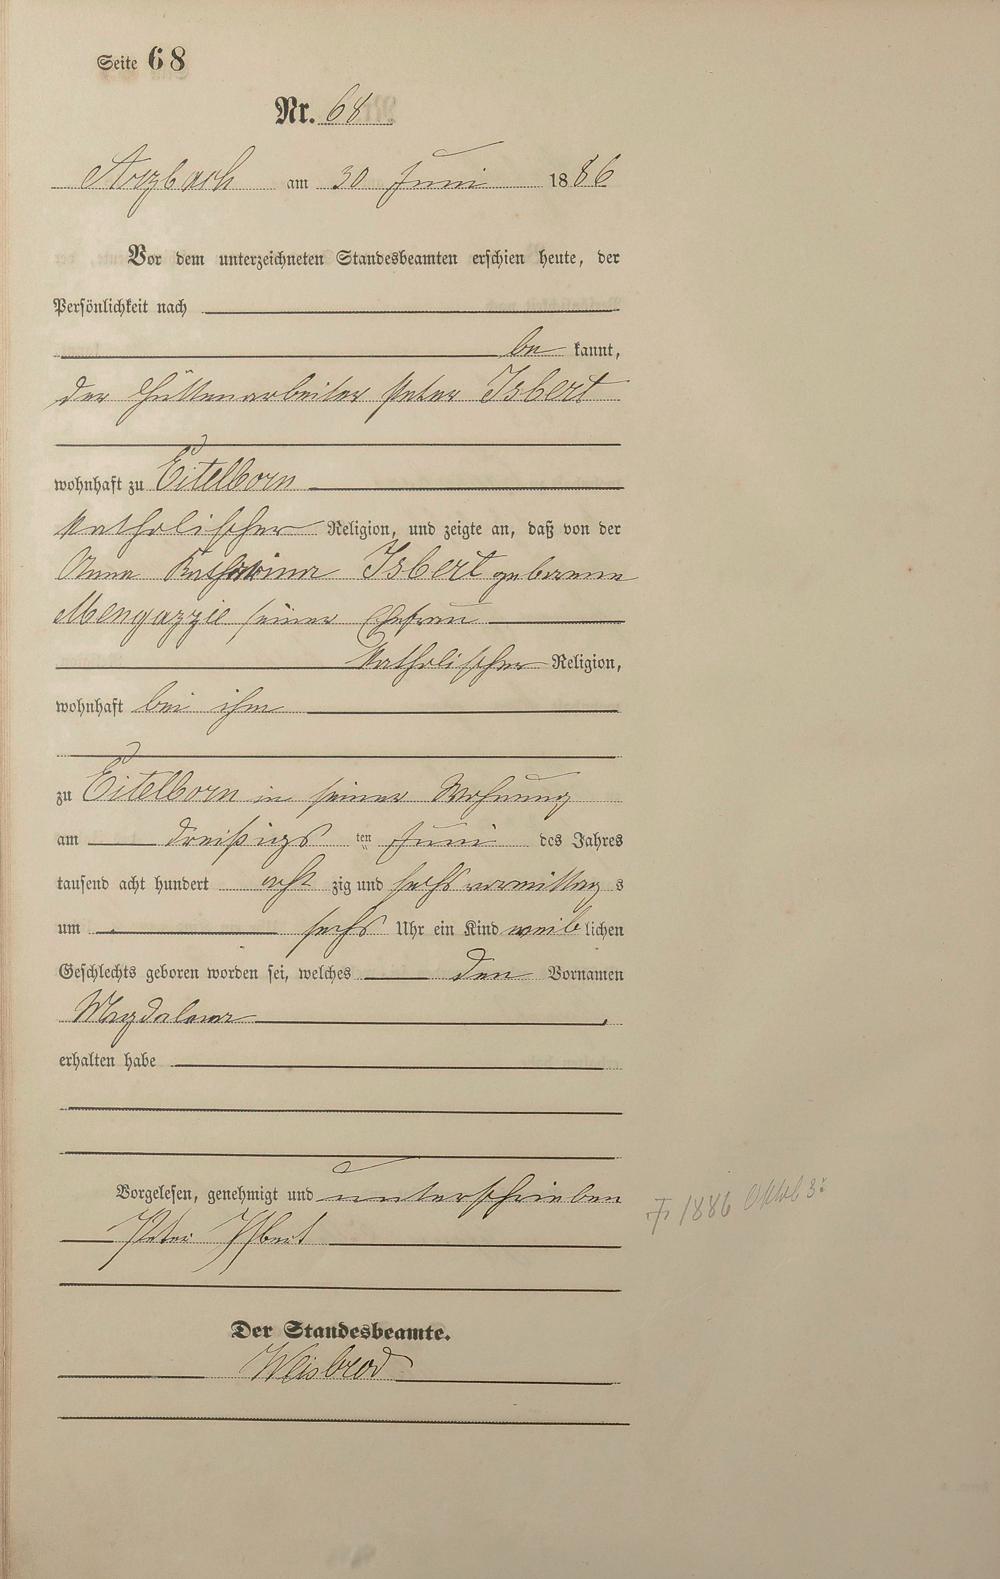 Seite 68
Nr. 68
Arzbach am 30 Juni 1886
Vor dem unterzeichneten Standesbeamten erschien heute, der
Persönlichkeit nach
be kannt,
der Hüttenarbeiter Peter Isbert
wohnhaft zu Eitelborn
katholischer Religion, und zeigte an, daß von der
Anna Katharina Isbert geborene
Mengazzie seiner Ehefrau
katholischer Religion,
wohnhaft bei ihm
zu Eitelborn in seiner Wohnung
am dreißigs ten Juni des Jahres
tausend acht hundert acht zig und sechs vormittag s
um sechs Uhr ein Kind weib lichen
Geschlechts geboren worden sei, welches den Vornamen
Magdalena ,
erhalten habe
Vorgelesen, genehmigt und unterschrieben
Peter Isbert
† 1886 Oktob 3
Der Standesbeamte.
Weisbrod